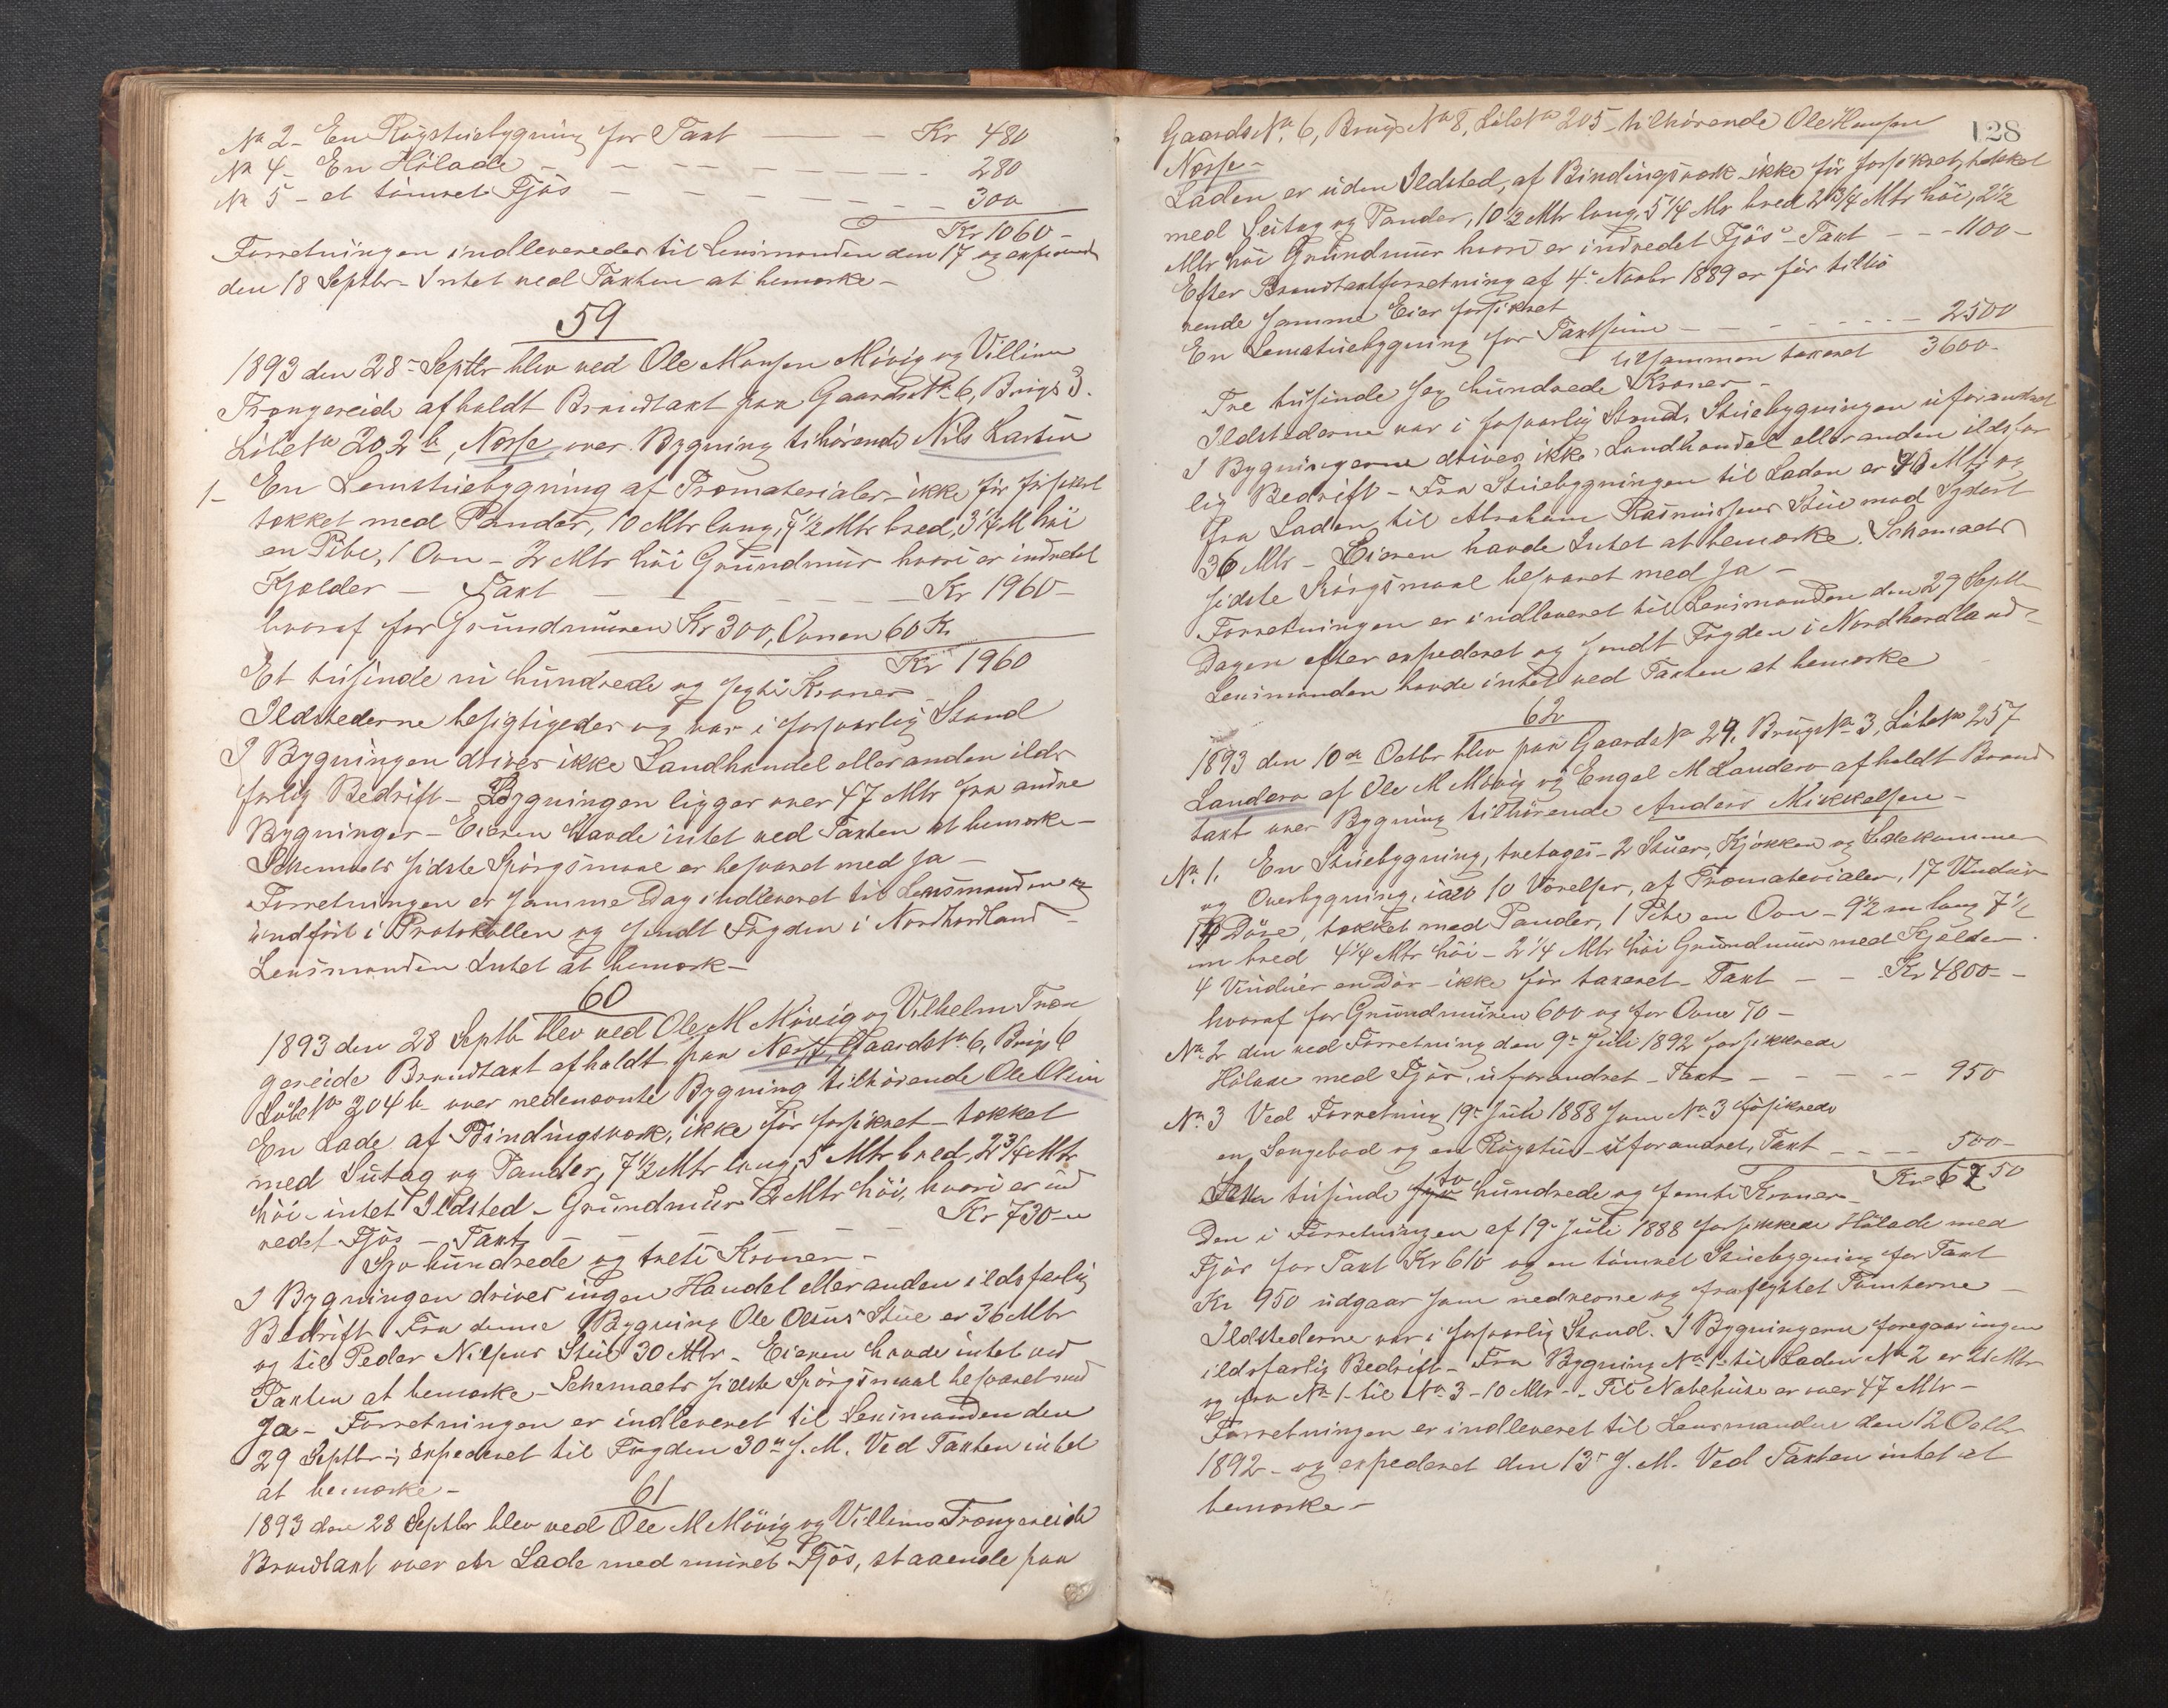 No 2 - En Røgstuebygning for Taxt — — — Kr 480
No 4 - En Hølade — — — — 280
No 5 - et tømret Fjøs — — — — 300
Kr 1060 -
Forretningen indleveredes til Lensmanden den 17 og expederet
den 18 Septbr - Intet ved Taxten at bemærke -
59
1893 den 28 - Septbr blev ved Ole Monsen Møvig og Villum
Trengereide afholdt Brandtaxt paa Gaards No 6, Brugs 3.
Løbe No 202 b, Nosse over Bygning tihørende Nils Larsen
1 - En Lemstuebygning af Træmaterialer - ikke før forsikret
tækket med Pander, 10 Mtr lang, 7½ Mtr bred, 3¼ M høi
en Pibe, 1 Ovn - 2 Mtr høi Grundmur hvori er indredet
Kjælder — Taxt — — — Kr 1960 -
hvoraf for Grundmuren Kr 300, Ovnen 60 Kr
Kr 1960
Et tusinde ni hundrede og sexti Kroner -
Ildstederne besigtigedes og var i forsvarlig Stand
I Bygningen drives ikke Landhandel eller anden ilds
farlig Bedrift - Bygningen ligger over 47 Mtr fra andre
Bygninger - Eieren havde intet ved Taxten at bemærke -
Schemaets sidste Spørgsmaal er besvaret med Ja -
Forretningen er samme Dag indleveret til Lensmanden og
indført i Protokollen og sendt Fogden i Nordhordland -
Lensmanden Intet at bemærk -
60
1893 den 28 Septb blev ved Ole M Møvig og Vilhelm Tren
gereide Brandtaxt afholdt paa Nosse, Gaards No 6, Brugs 6
Løbe No 204 b - over nedennævnte Bygning tilhørende Ole Olsen
En Lade af Bindingsværk, ikke før forsikret - tækket
med Sutag og Pander, 7½ Mtr lang, 5 Mtr bred, 2¾ Mtr
høi - intet Ildsted - Grundmur 2 Mtr høi, hvori er ind
redet Fjøs — Taxt — — — Kr 730 -
Syv hundrede og treti Kroner -
I Bygningen drives ingen Handel eller anden ildsfarlig
Bedrift. Fra denne Bygning Ole Olsens Stue er 36 Mtr
og til Peder Nilsens Stue 30 Mtr - Eieren havde intet ved
Taxten at bemærke - Schemaets sidste Spørgsmaal besvaret med
Ja - Forretningen er indleveret til Lensmanden den
29 Septbr -, expederet til Fogden 30 s. M. Ved Taxten intet
at bemærke -
61
1893 den 28 Septbr blev ved Ole M Møvig og Villum Trengereide
Brandtaxt over en Lade med muret Fjøs, staaende paa
128
Gaards No. 6, Brugs No 8, Løbe No 205 - tilhørende Ole Hansen
Nosse -
Laden er uden Ildsted, af Bindingsværk - ikke før forsikret, tækket
med Sutag og Pander, 10½ Mtr lang, 5¼ Mtr bred 2¾ Mtr høi, 2½
Mtr høi Grundmur hvori er indredet Fjøs - Taxt - - - 1100 -
Efter Brandtaxtforretning af 4. Novbr 1889 er før tilhø
rende samme Eier forsikret
En Lemstuebygning for Taxtsum — — — 2500
tilsammen taxeret 3600 -
Tre tusinde sex hundrede Kroner -
Ildstederne var i forsvarlig Stand, Stuebygningen uforandret
I Bygningerne drives ikke Landhandel eller anden ildsfar
lig Bedrift - Fra Stuebygningen til Laden er 40 Mtr og
fra Laden til Abraham Rasmussens Stue mod Sydøst
36 Mtr - Eieren havde Intet at bemærke. Schemaets
sidste Spørgsmaal besvaret med Ja -
Forretningen er indleveret til Lensmanden den 29 Septb
Dagen efter expederet og sendt Fogden i Nordhordland -
Lensmanden havde intet ved Taxten at bemærke
62
1893 den 10de Octbr blev paa Gaards No 29, Brugs No 3, Løbe No 257
Landero af Ole M Møvig og Engel M Landero afholdt Brand
taxt over Bygning tilhørende Anders Mikkelsen -
No. 1. En Stuebygning, toetages - 2 Stuer, Kjøkken og Sidekammer
og Overbygning, ialt 10 Værelser, af Træmaterialer, 17 Vinduer
Døre, tækket med Pander, 1 Pibe en Ovn - 9½ m lang 7½
m bred 4¼ Mtr høi - 2¼ Mtr høi Grundmur med Kjelder
4 Vinduer en Dør - ikke før taxeret - Taxt — — Kr 4800 - -
hvoraf for Grundmuren 600 og for Ovne 70 -
No. 2 den ved Forretning den 9 - Juli 1892 forsikkrede
Hølade med Fjøs, uforandret - Taxt — — — 950
No. 3 Ved Forretning 19 - Juli 1888 som No 3 forsikrede
en Sengebod og en Røgstue - uforandret, Taxt - - - - 500 -
Kr 6250
Sex tusinde to hundrede og femti Kroner -
Den i Forretningen af 19 - Juli 1888 forsikkrede Hølade med
Fjøs for Taxt Kr 610 og en tømret Stuebygning for Taxt
Kr 950 udgaar som nedrevne og fraflyttet Tomterne -
Ildstederne var i forsvarlig Stand. I Bygningerne foregaar ingen
ildsfarlig Bedrift - Fra Bygning No 1 - til Laden No 2 er 21 Mtr
og fra No 1 - til No 3 - 10 Mtr - - Til Nabohuse er over 47 Mtr -
Forretningen er indleveret til Lensmanden den 12 Octbr
1892 - og expederet den 13 s. M. Ved Taxten intet at
bemærke -